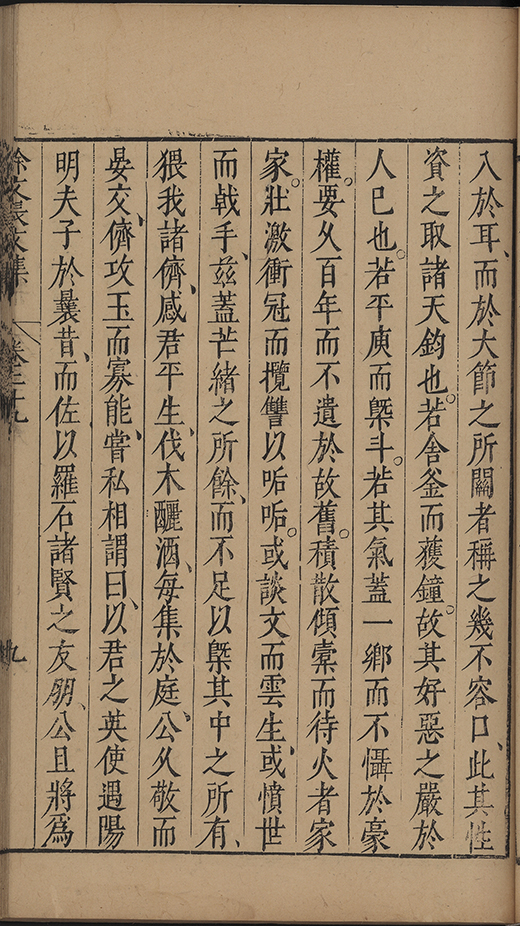 入於耳、而於大節之所關者稱之幾不容口、此其性
資之取諸天鈞也。若舍釜而獲鐘。故其好惡之嚴於
人已也。若平庾而槩斗。若其氣蓋一鄉而不懾於豪
權。要久百年而不遺於故舊。積散傾橐而待火者家
家。壯激衝冠而攬讐以啒啒。或談文而雲生、或憤世
而戟手、兹蓋芒緒之所餘、而不足以槩其中之所有、
猥我諸儕、感君平生、伐木釃酒、每集於庭、公久敬而
晏交、儕攻玉而寡能、嘗私相謂曰、以君之英使遇陽
明夫子於曩昔、而佐以羅石諸賢之友朋、公且將爲
徐文長文集 卷三十九 九